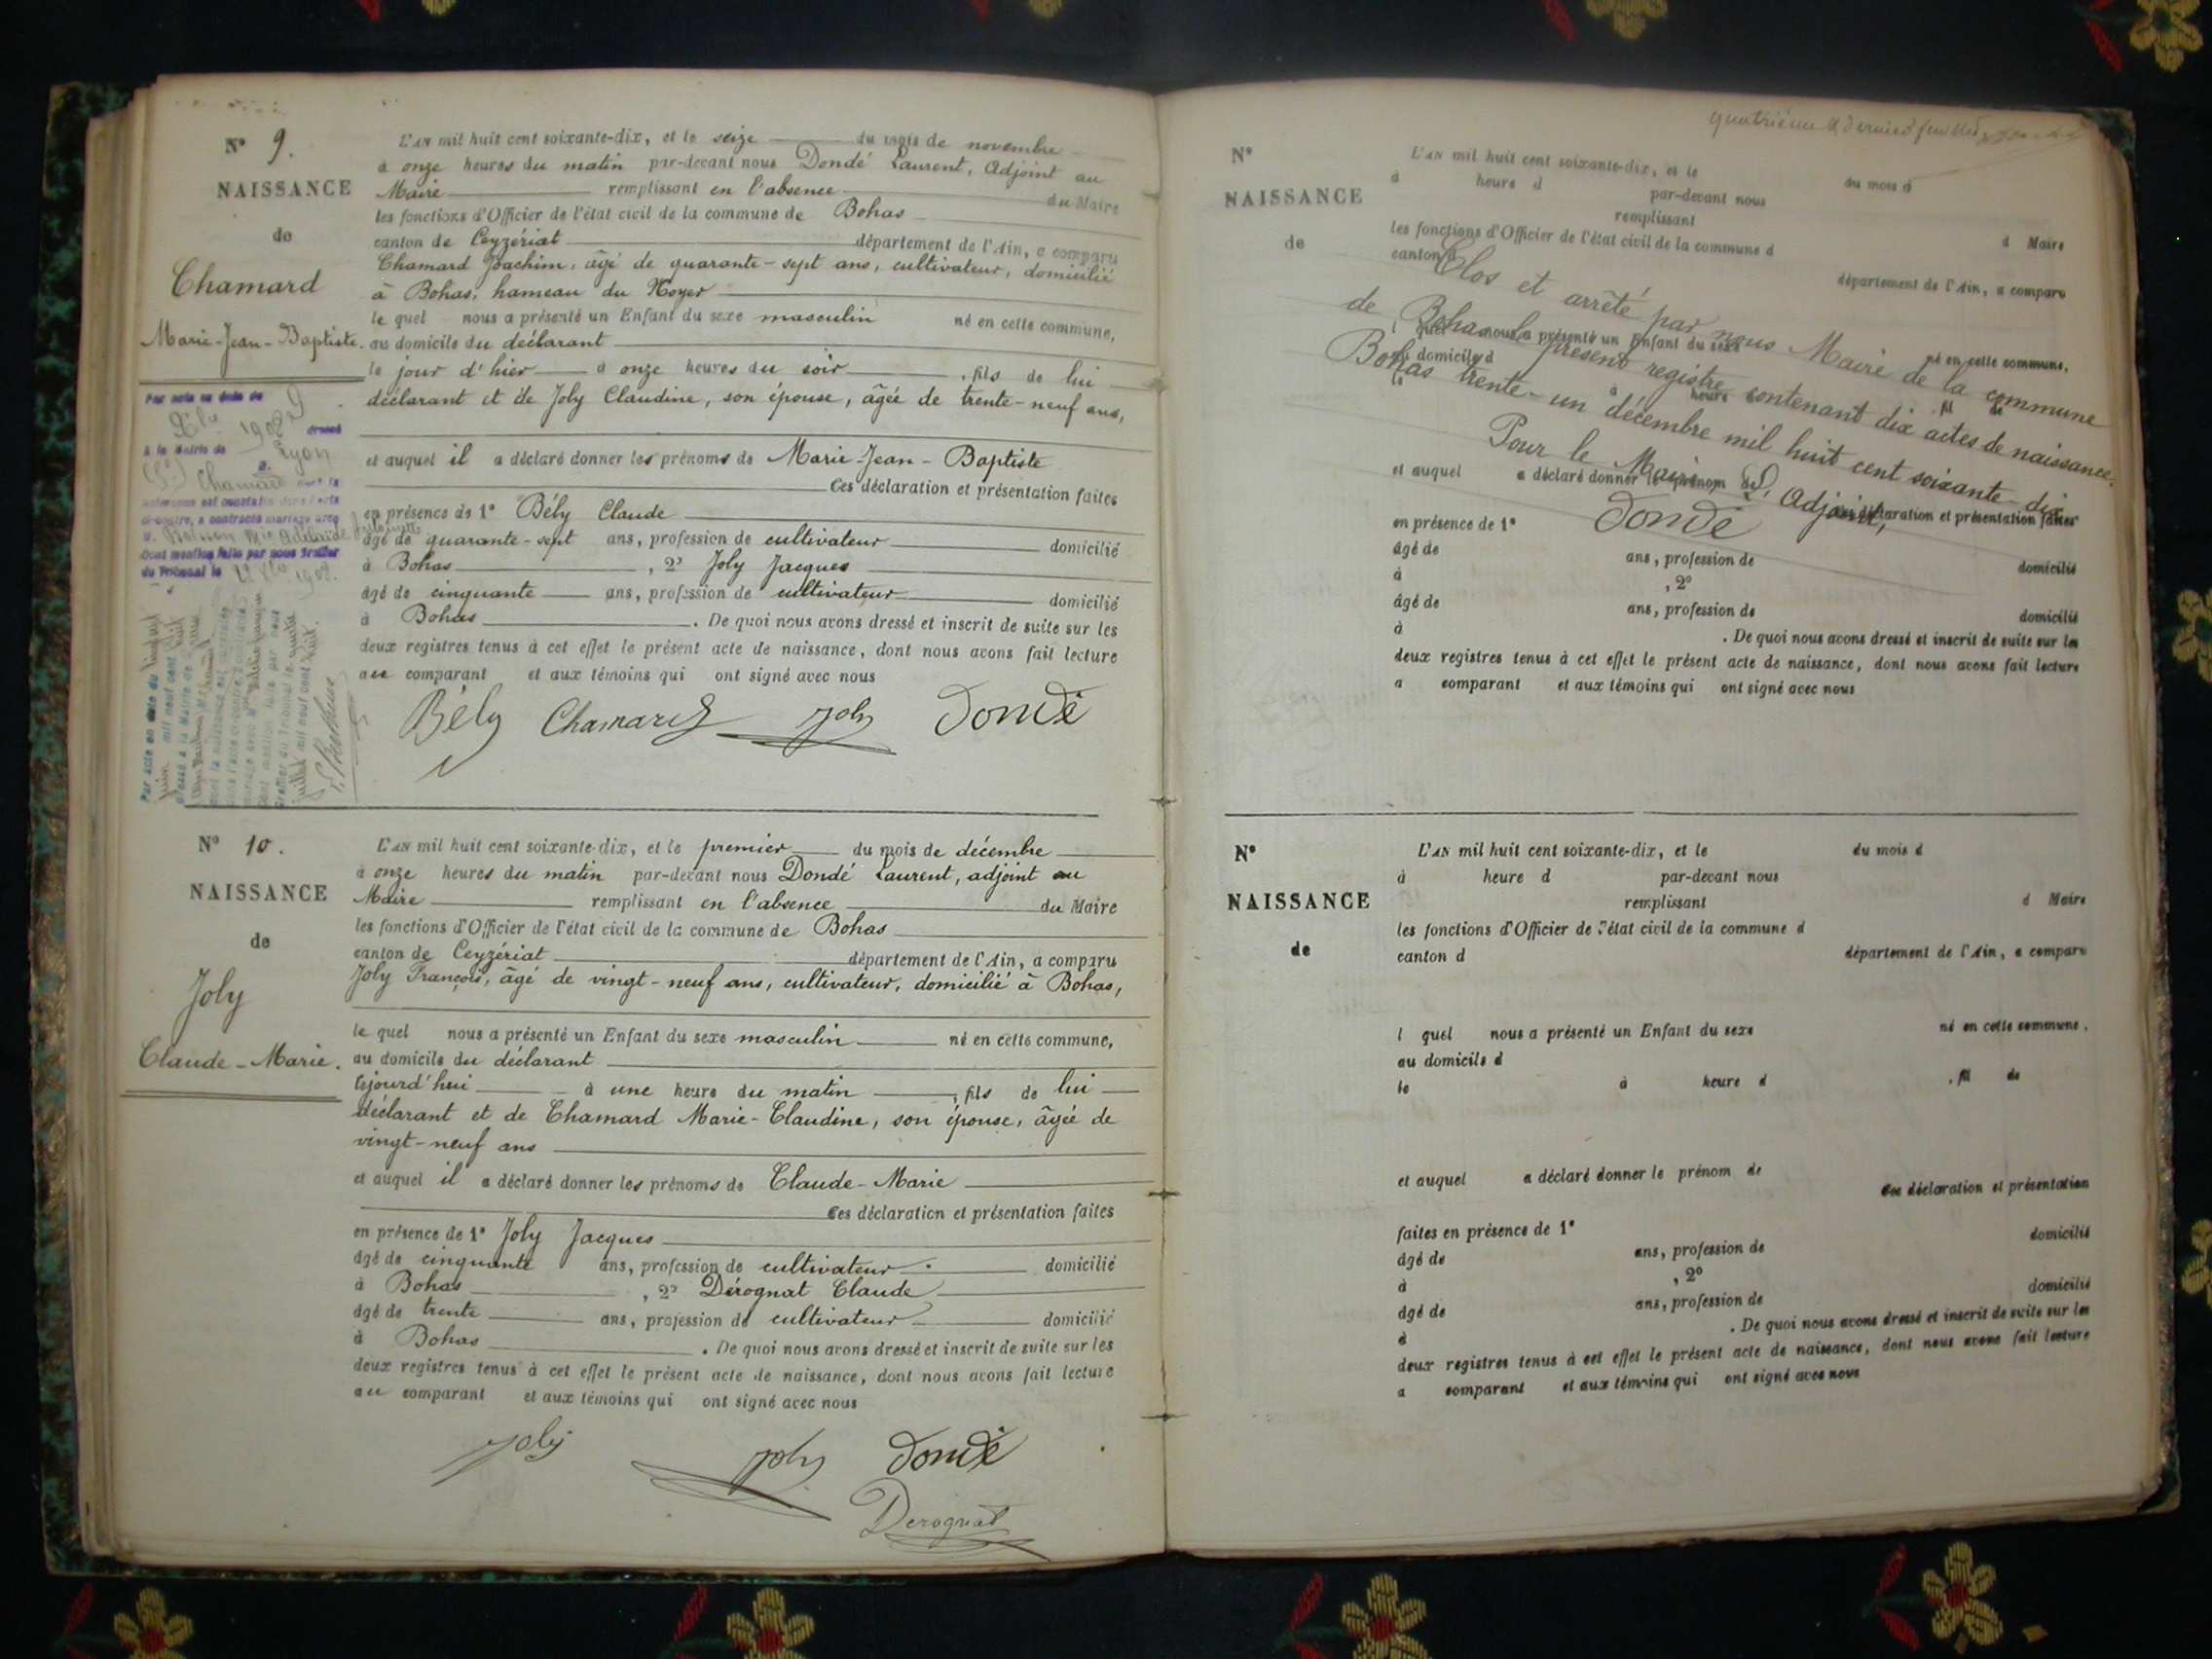 N° 9.
NAISSANCE
de
Chamard
Marie-Jean-Baptiste.
L'AN mil huit cent soixante-dix, et le seize du mois de novembre
à onze heures du matin par-devant nous Dondé Laurent, Adjoint au
Maire remplissant en l'absence du Maire
les fonctions d'Officier de l'état civil de la commune de Bohas
canton de Ceyzériat département de l'Ain, a comparu
Chamard Joachim, âgé de quarante-sept ans, cultivateur, domicilié
à Bohas, hameau du Noyer
le quel nous a présenté un Enfant du sexe masculin né en cette commune,
au domicile du déclarant
le jour d'hier à onze heures du soir, fils de lui
déclarant et de Joly Claudine, son épouse, âgée de trente-neuf ans,
et auquel il a déclaré donner les prénoms de Marie-Jean-Baptiste
Ces déclaration et présentation faites
en présence de 1° Bély Claude
âgé de quarante-sept ans, profession de cultivateur domicilié
à Bohas, 2° Joly Jacques
âgé de cinquante ans, profession de cultivateur domicilié
à Bohas. De quoi nous avons dressé et inscrit de suite sur les
deux registres tenus à cet effet le présent acte de naissance, dont nous avons fait lecture
au comparant et aux témoins qui ont signé avec nous
Bély Chamard Joly Dondé
Par acte en date du 9
1908 dressé
à la Mairie de Lyon
Chamard dont la
naissance est constatée dans l'acte
ci-contre, a contracté mariage avec
Mie Adélaïde
Dont mention faite par nous Greffier
du Tribunal le 1908.
N° 10.
NAISSANCE
de
Joly
Claude-Marie.
L'AN mil huit cent soixante-dix, et le premier du mois de décembre
à onze heures du matin par-devant nous Dondé Laurent, adjoint au
Maire remplissant en l'absence du Maire
les fonctions d'Officier de l'état civil de la commune de Bohas
canton de Ceyzériat département de l'Ain, a comparu
Joly François, âgé de vingt-neuf ans, cultivateur, domicilié à Bohas,
le quel nous a présenté un Enfant du sexe masculin né en cette commune,
au domicile du déclarant
cejourd'hui à une heure du matin, fils de lui
déclarant et de Chamard Marie-Claudine, son épouse, âgée de
vingt-neuf ans
et auquel il a déclaré donner les prénoms de Claude-Marie
Ces déclaration et présentation faites
en présence de 1° Joly Jacques
âgé de cinquante ans, profession de cultivateur domicilié
à Bohas, 2° Dérognat Claude
âgé de trente ans, profession de cultivateur domicilié
à Bohas. De quoi nous avons dressé et inscrit de suite sur les
deux registres tenus à cet effet le présent acte de naissance, dont nous avons fait lecture
au comparant et aux témoins qui ont signé avec nous
Joly Joly Dondé
Derognat
quatrième & dernier feuillet
N°
NAISSANCE
de
L'AN mil huit cent soixante-dix, et le du mois d
à heure d par-devant nous
remplissant d Maire
les fonctions d'Officier de l'état civil de la commune d
canton d département de l'Ain, a comparu
Clos et arrêté par nous Maire de la commune
de Bohas le présent registre contenant dix actes de naissance.
Bohas trente-un décembre mil huit cent soixante-dix
Pour le Maire, L'Adjoint,
Dondé
l quel nous a présenté un Enfant du sexe né en cette commune,
au domicile d
le à heure d, fil de
et auquel a déclaré donner le prénom de
Ces déclaration et présentation faites
en présence de 1°
âgé de ans, profession de domicilié
à , 2°
âgé de ans, profession de domicilié
à . De quoi nous avons dressé et inscrit de suite sur les
deux registres tenus à cet effet le présent acte de naissance, dont nous avons fait lecture
a comparant et aux témoins qui ont signé avec nous
N°
NAISSANCE
de
L'AN mil huit cent soixante-dix, et le du mois d
à heure d par-devant nous
remplissant d Maire
les fonctions d'Officier de l'état civil de la commune d
canton d département de l'Ain, a comparu
l quel nous a présenté un Enfant du sexe né en cette commune,
au domicile d
le à heure d , fil de
et auquel a déclaré donner le prénom de
Ces déclaration et présentation
faites en présence de 1°
âgé de ans, profession de domicilié
à , 2°
âgé de ans, profession de domicilié
à . De quoi nous avons dressé et inscrit de suite sur les
deux registres tenus à cet effet le présent acte de naissance, dont nous avons fait lecture
a comparant et aux témoins qui ont signé avec nous